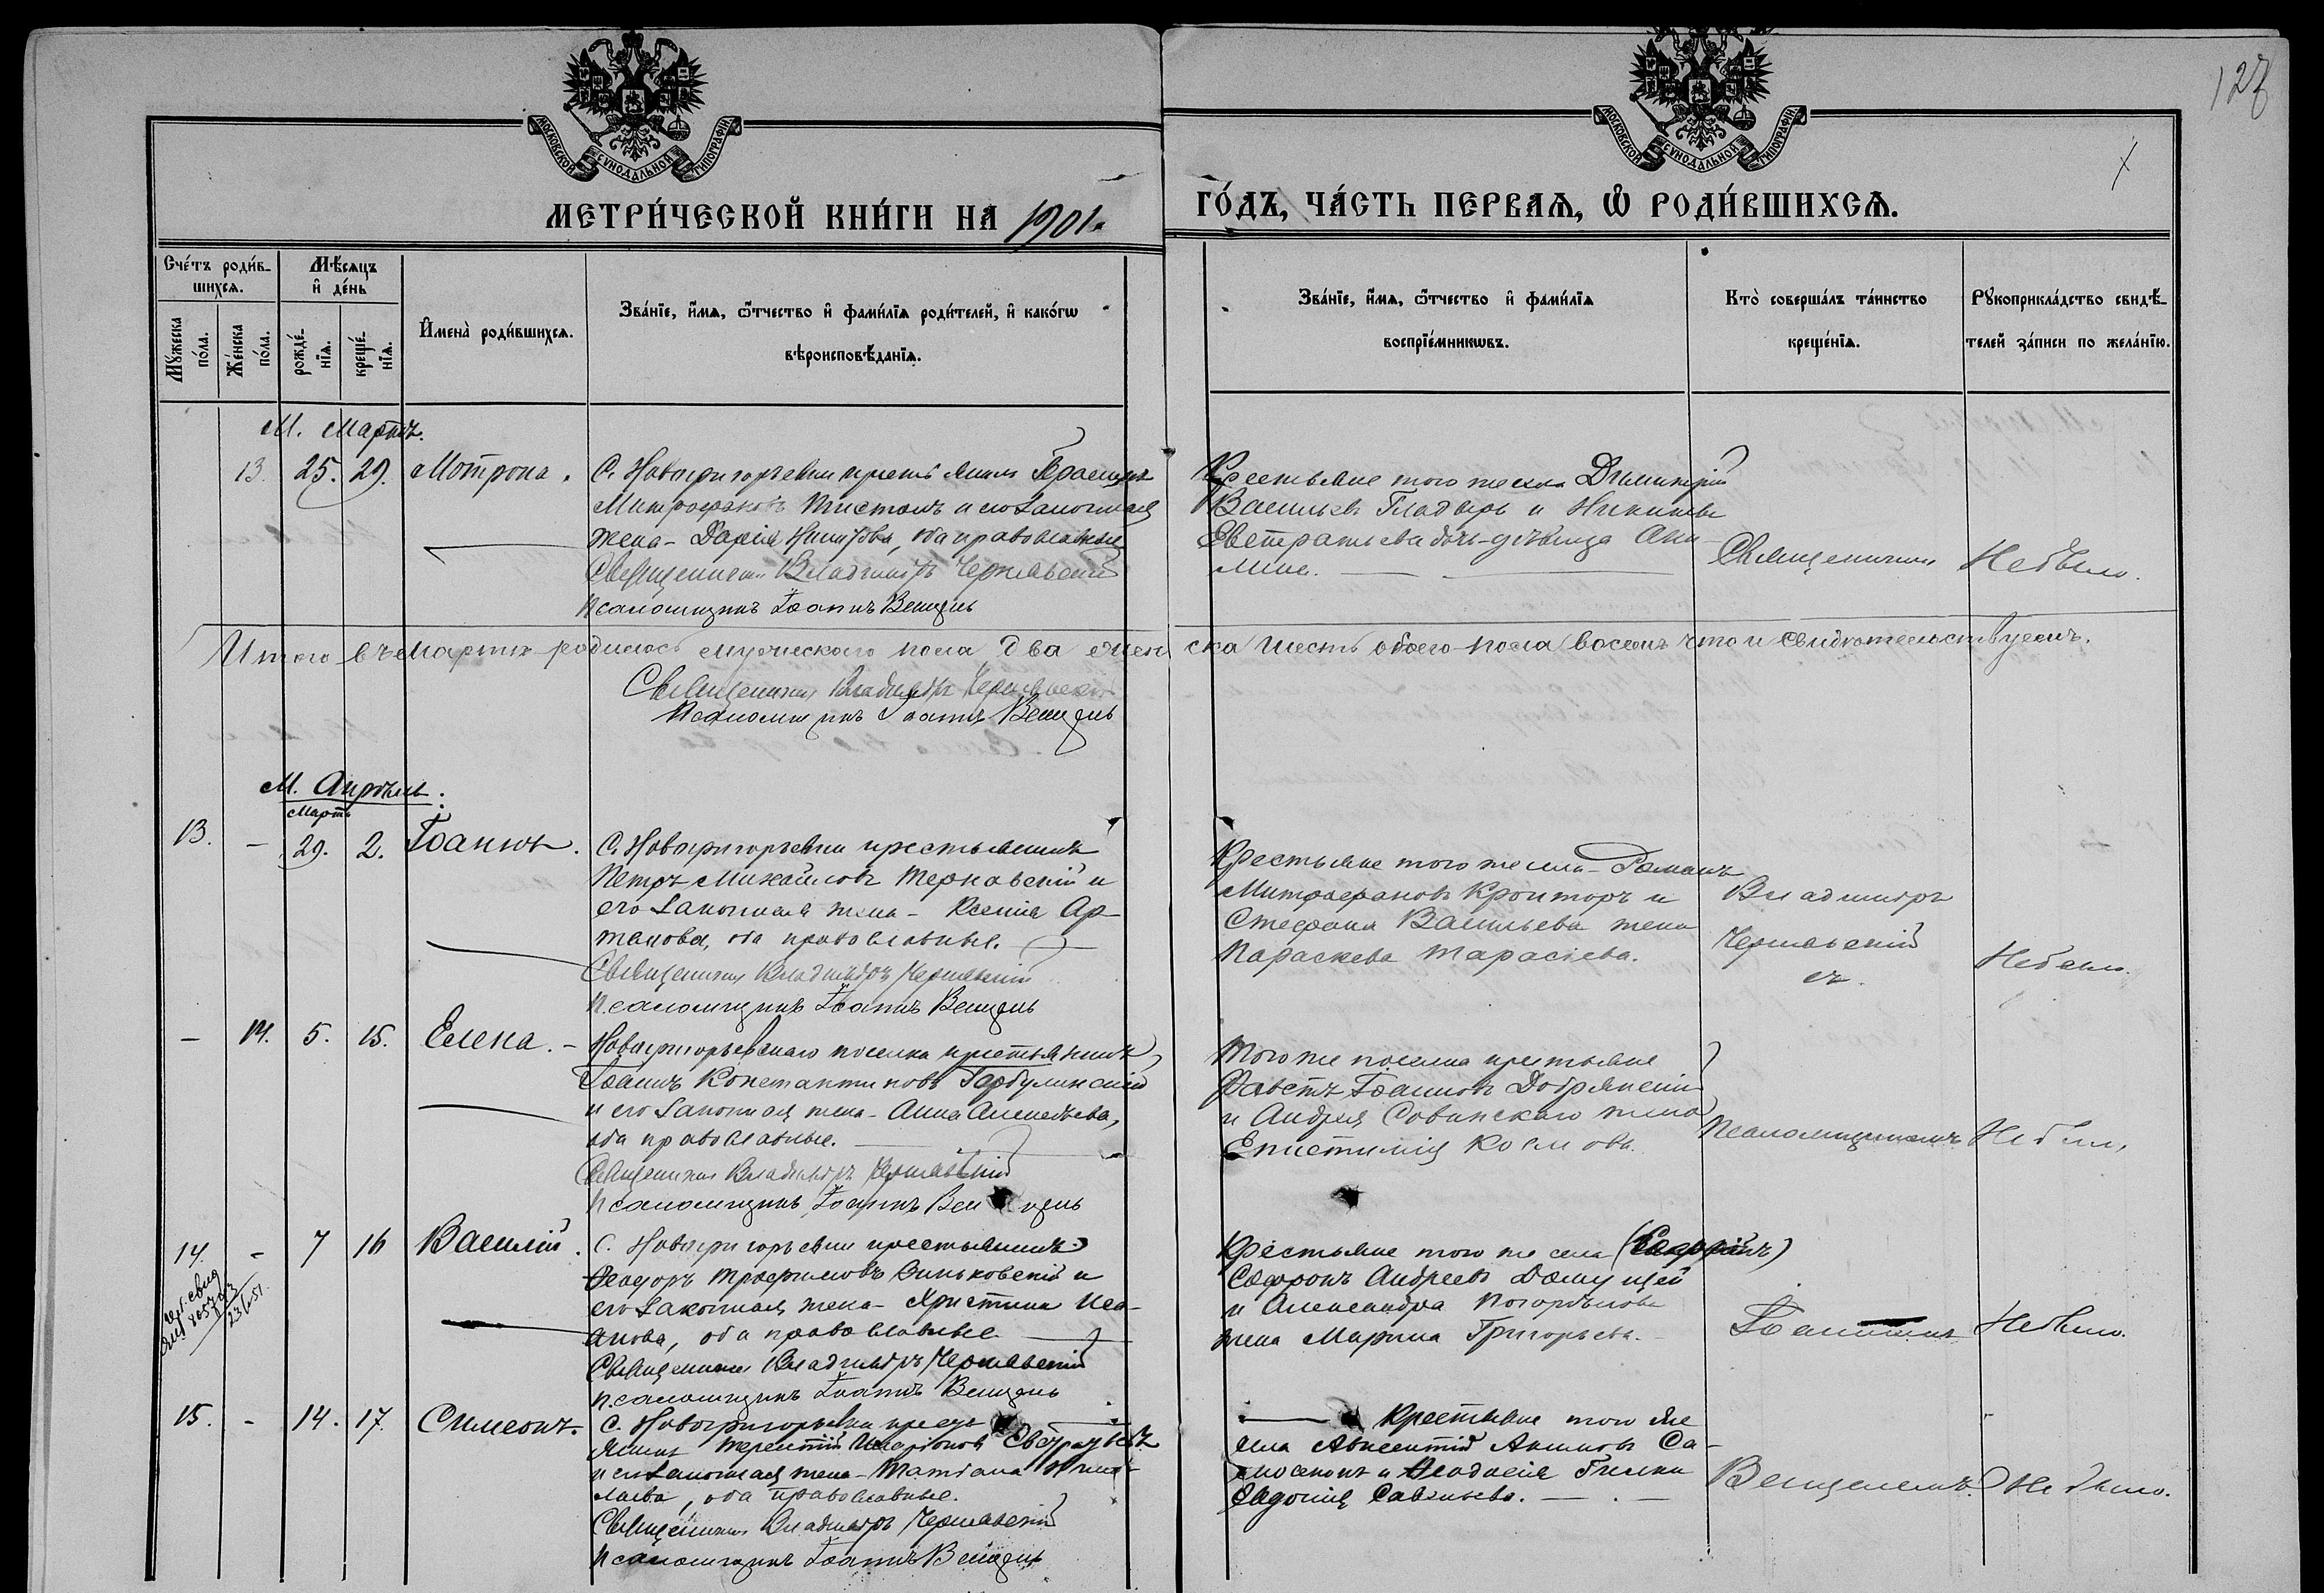 127
МОСКОВСКОЙ СѴНОДАЛЬНОЙ ТИПОГРАФІИ
МОСКОВСКОЙ СѴНОДАЛЬНОЙ ТИПОГРАФІИ
МЕТРИ́ЧЕСКОЙ КНИ́ГИ НА 1901.
ГО́ДЪ, ЧА́СТЬ ПЕРВАѦ, Ѿ РОДИ́ВШИХСѦ.
Сче́тъ роди́в-
шихсѧ.
Мꙋ́жеска
по́ла.
Же́нска
по́ла.
Мѣ́сѧцъ
и҆ де́нь
рожде́-
нїѧ.
креще́-
нїѧ.
И҆мена̀ роди́вшихсѧ.
Зва́нїе, и҆́мѧ, ѻ҆́тчество и҆ фами́лїѧ роди́телей, и҆ како́гѡ
вѣроисповѣ́данїѧ.
Зва́нїе, и҆́мѧ, ѻ҆́тчество и҆ фами́лїѧ
воспрїе́мникѡвъ.
Кто̀ соверша́лъ та́инство
креще́нїѧ.
Рꙋкоприкла́дство свидѣ́-
телей за́писи по жела́нїю.
М. Мартъ.
13. 25. 29. Мотрона.
С. Новогригорьевки
Митрофановъ и его законная
жена - Дарія, оба православные
Священникъ Владиміръ Чернявскій
Псаломщикъ Іоаннъ Венцель
Крестьяне того же села Димитрій
Васильевъ Гладырь и
Евстратіева дочь-дѣвица
Священникъ
Не было.
Итого въ Мартѣ родилось мужескаго пола два женска шесть обоего пола восемь что и свидѣтельствуемъ.
Священникъ Владиміръ Чернявскій
Псаломщикъ Іоаннъ Венцель
М. Апрѣль.
Мартъ
13. - 29. 2. Іоаннъ.
С. Новогригорьевки крестьянинъ
Петръ Михайловъ Терновскій и
его законная жена - Ксенія Ар-
темова, оба православные.
Священникъ Владиміръ Чернявскій
Псаломщикъ Іоаннъ Венцель
Крестьяне того же села - Романъ
Митрофановъ и
Стефана Васильева жена
Параскева Тарасіева.
Владиміръ
Чернявскій
съ
Не было.
- 14. 5. 15. Елена. -
Новогригорьевскаго поселка крестьянинъ
Іоаннъ Константиновъ Гарбулинскій
и его законная жена - Анна Алексѣева,
оба православные.
Священникъ Владиміръ Чернявскій
Псаломщикъ Іоаннъ Венцель
Того же поселка крестьяне
Фавстъ Іоанновъ Добрянскій
и Андрея Совинскаго жена
Епистимія Космова.
Псаломщикомъ
Не было.
14. - 7 16 Василій.
С. Новогригорьевки крестьянинъ
Ѳеодоръ Трофимовъ Синьковскій и
его законная жена - Христина Иса-
акова, оба православные.
Священникъ Владиміръ Чернявскій
Псаломщикъ Іоаннъ Венцель
Крестьяне того же села
Софронъ Андреевъ
и Александра
жена Марина Григорьева.
Іоанномъ
Не было.
15. - 14. 17. Симеонъ.
С. Новогригорьевки кресть
янинъ Терентій Иларіоновъ
и его законная жена - Татіана Нико-
лаева, оба православные.
Священникъ Владиміръ Чернявскій
Псаломщикъ Іоаннъ Венцель
Крестьяне того же
села Авксентій Са-
и Ѳеодосія
Евдокія Савельева.
Венцелемъ
Не было.